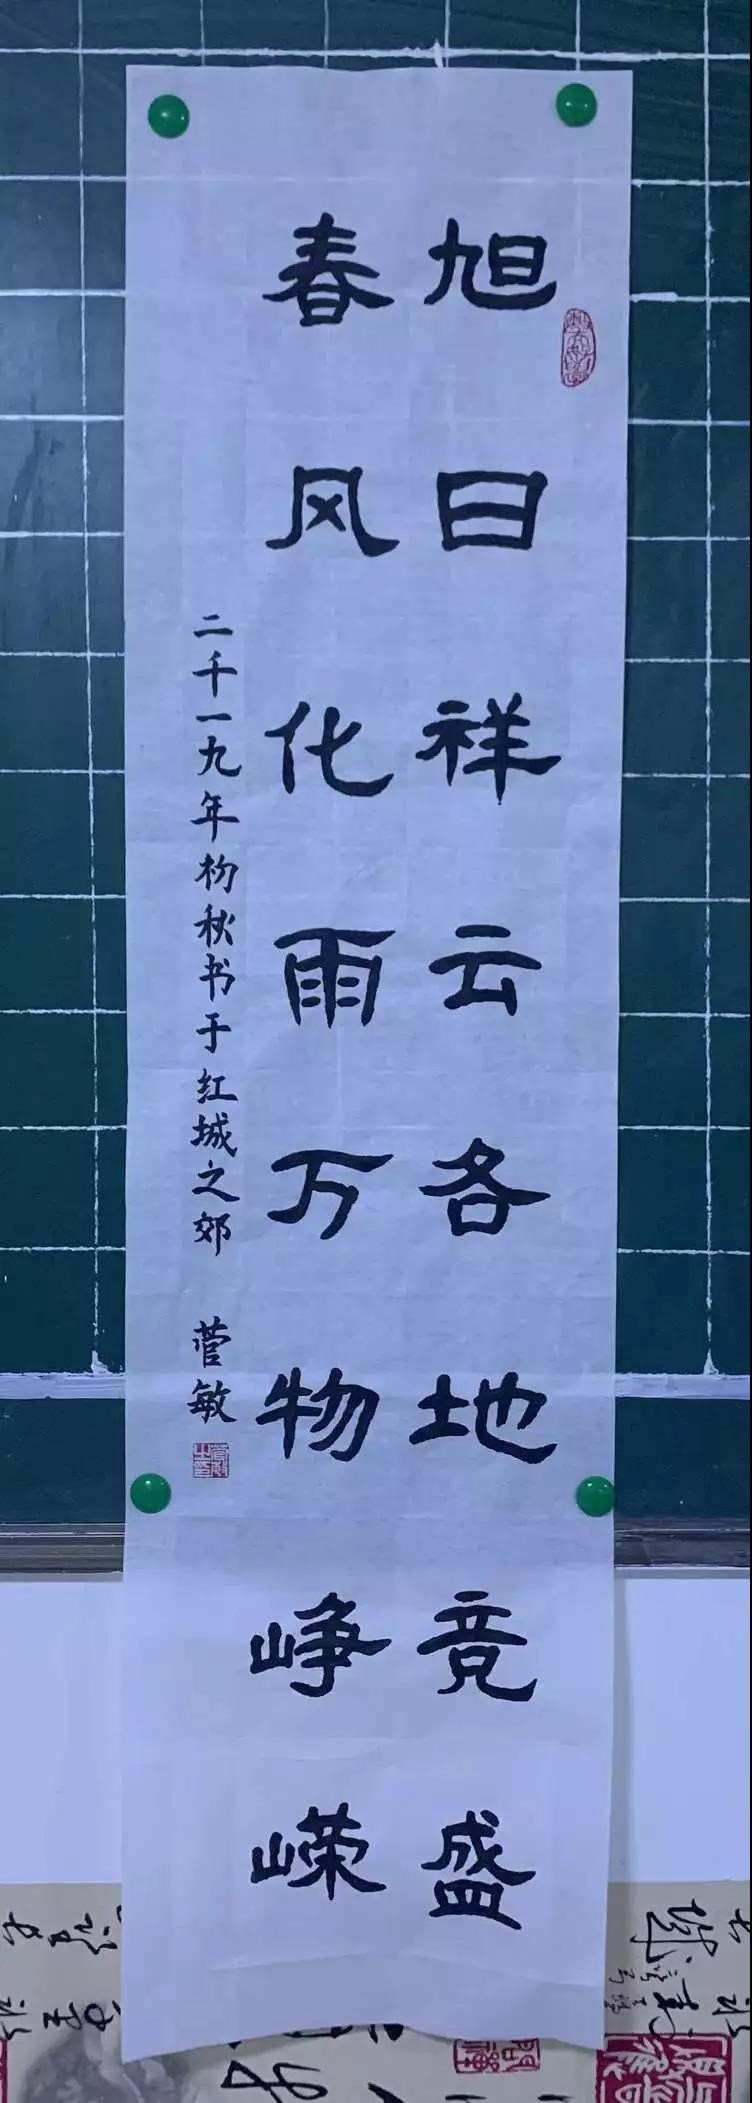 旭日祥云各地竞盛
春风化雨万物峥嵘
二千一九年杪秋书于红城之郊 菅敏